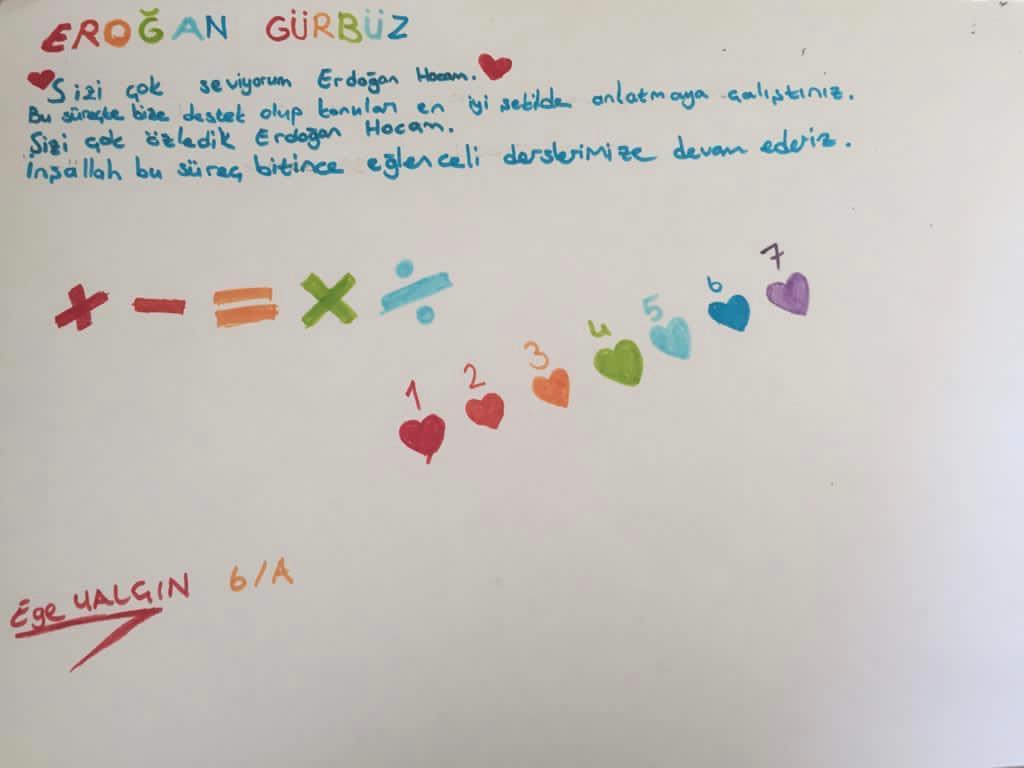 EROĞAN GÜRBÜZ
Sizi çok seviyorum Erdoğan Hocam.
Bu süreçte bize destek olup konuları en iyi şekilde anlatmaya çalıştınız.
Sizi çok özledik Erdoğan Hocam.
İnşallah bu süreç bitince eğlenceli derslerimize devam ederiz.
+ - = × ÷
1 2 3 4 5 6 7
Ege YALGIN 6/A